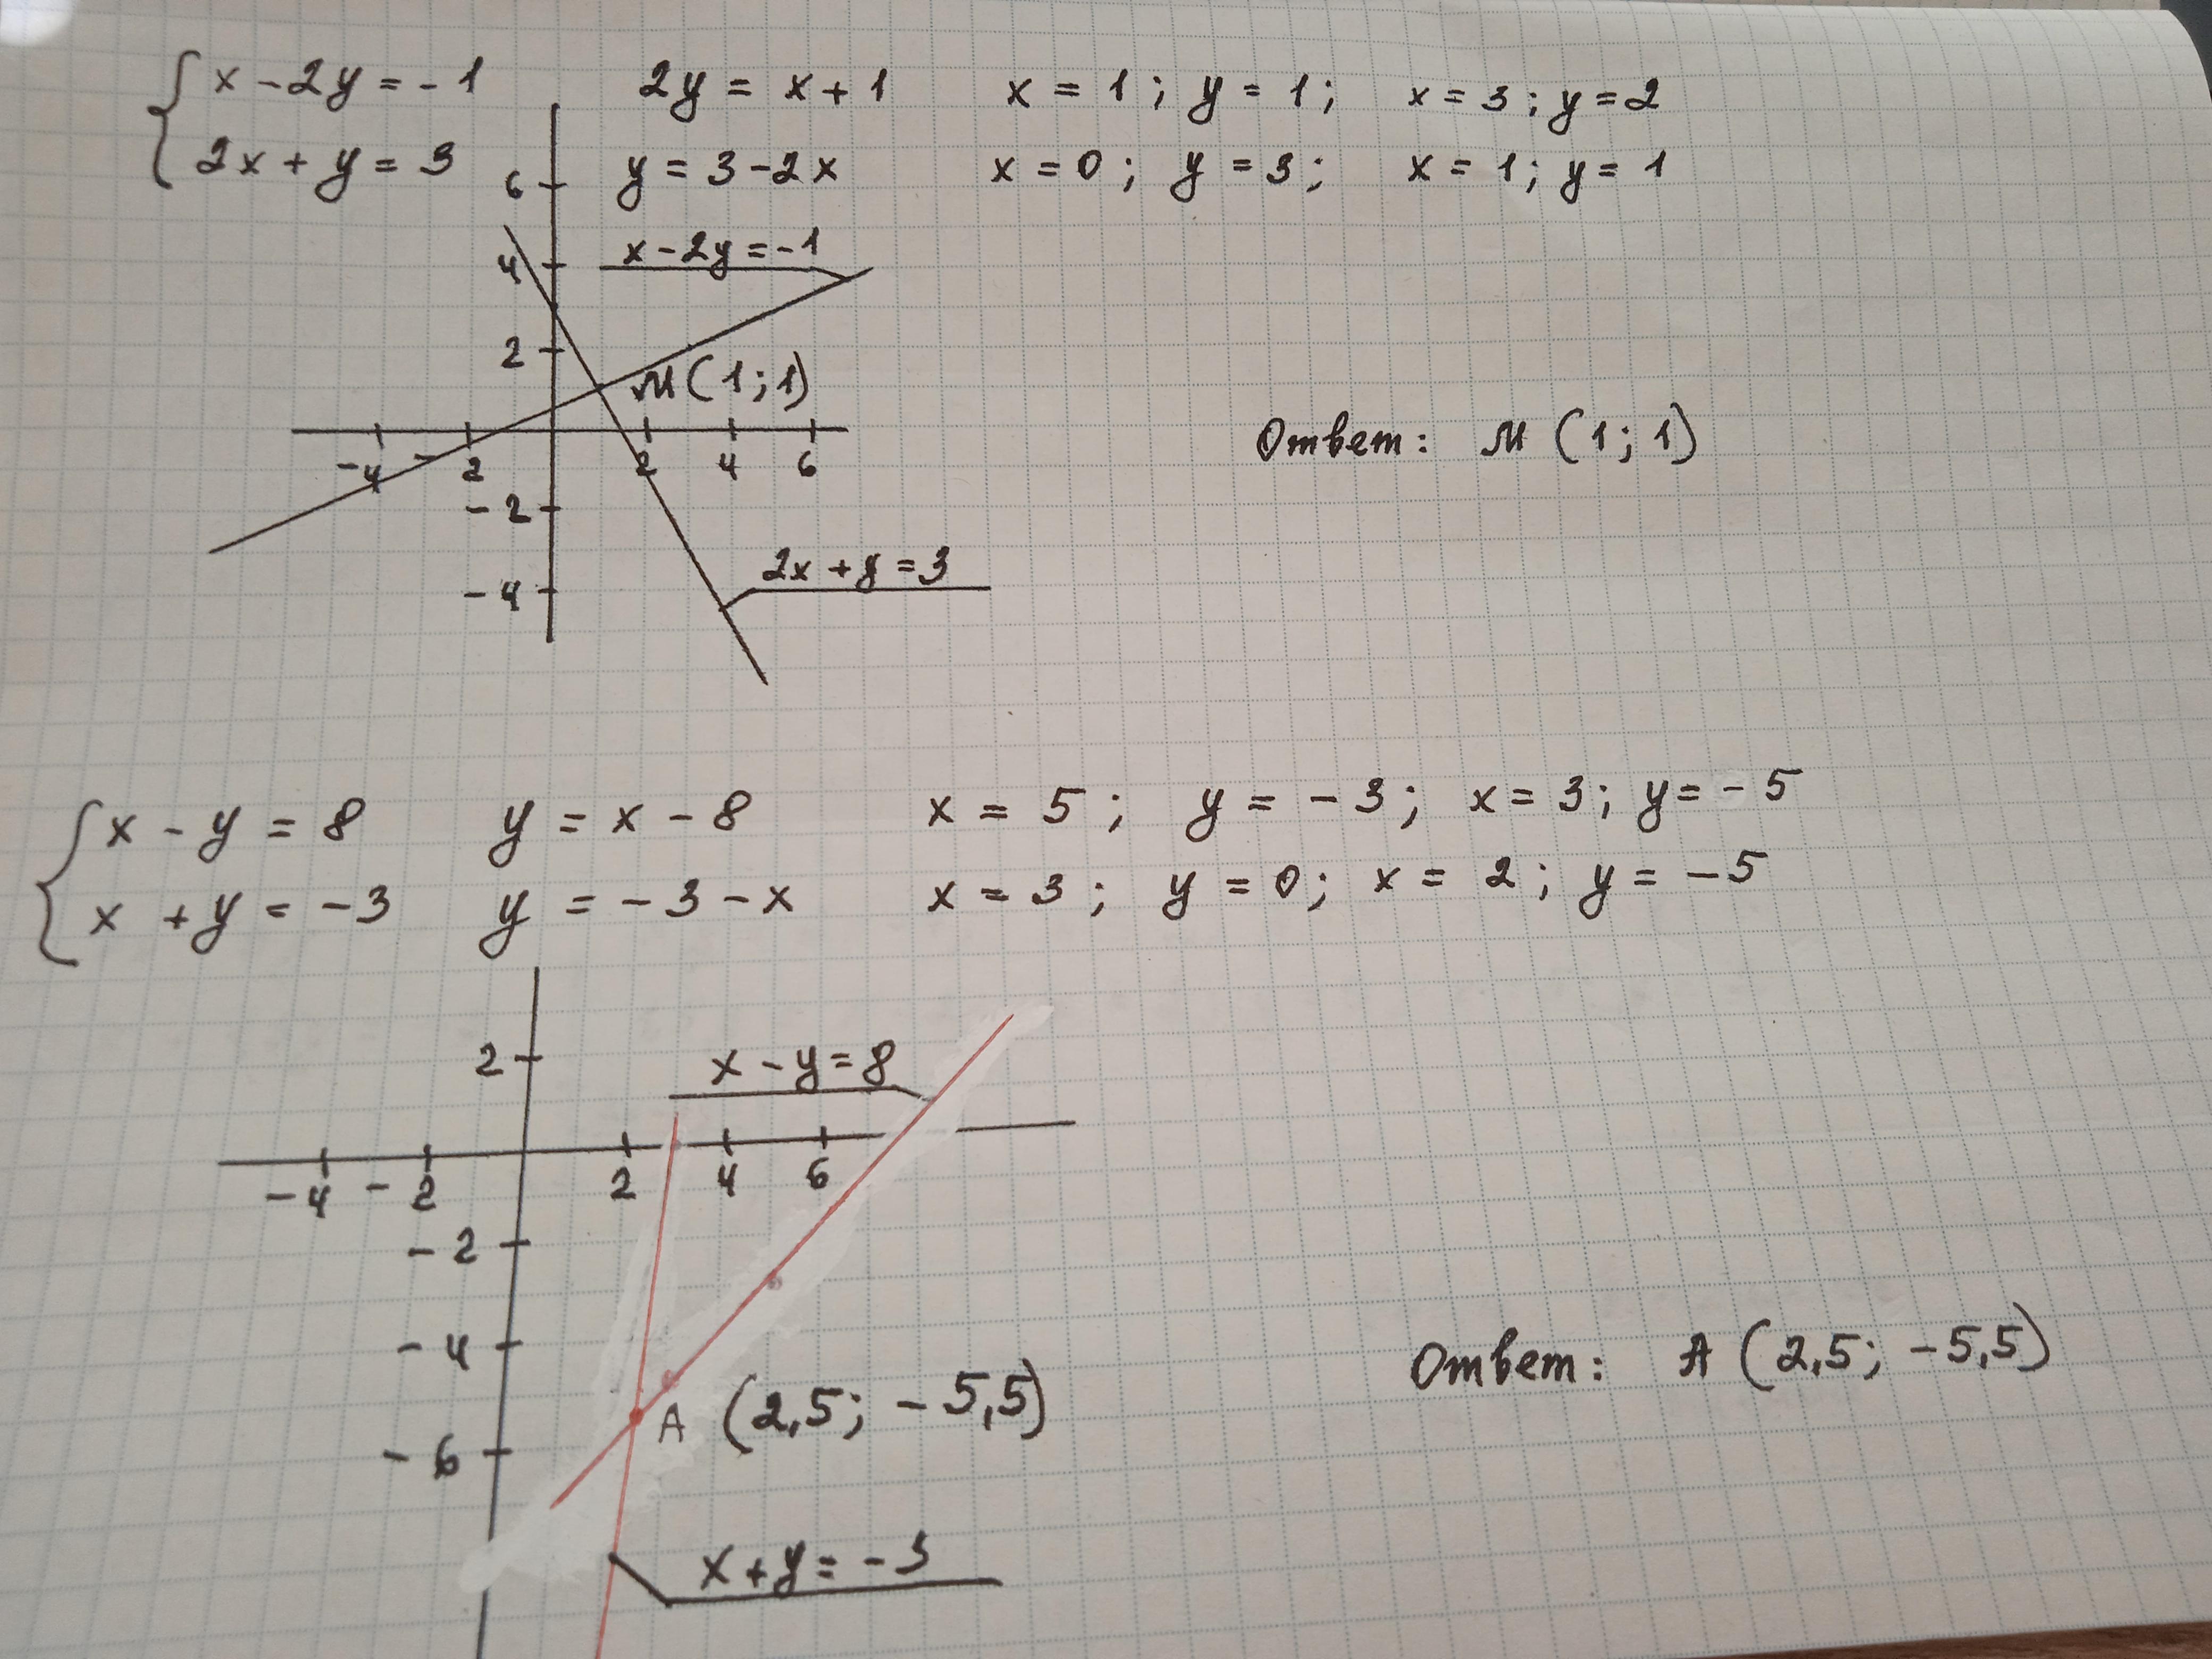 x - 2y = -1 2y = x + 1 x = 1; y = 1; x = 3; y = 2
2x + y = 3 y = 3 - 2x x = 0; y = 3; x = 1; y = 1
6
x - 2y = -1
4
2
М (1; 1)
Ответ: М (1; 1)
-4 - 2 2 4 6
-2
2x + y = 3
-4
x - y = 8 y = x - 8 x = 5; y = -3; x = 3; y = -5
x + y = -3 y = -3 - x x = 3; y = 0; x = 2; y = -5
2
x - y = 8
-4 -2 2 4 6
-2
-4
A (2,5; -5,5)
Ответ: A (2,5; -5,5)
-6
x + y = -3